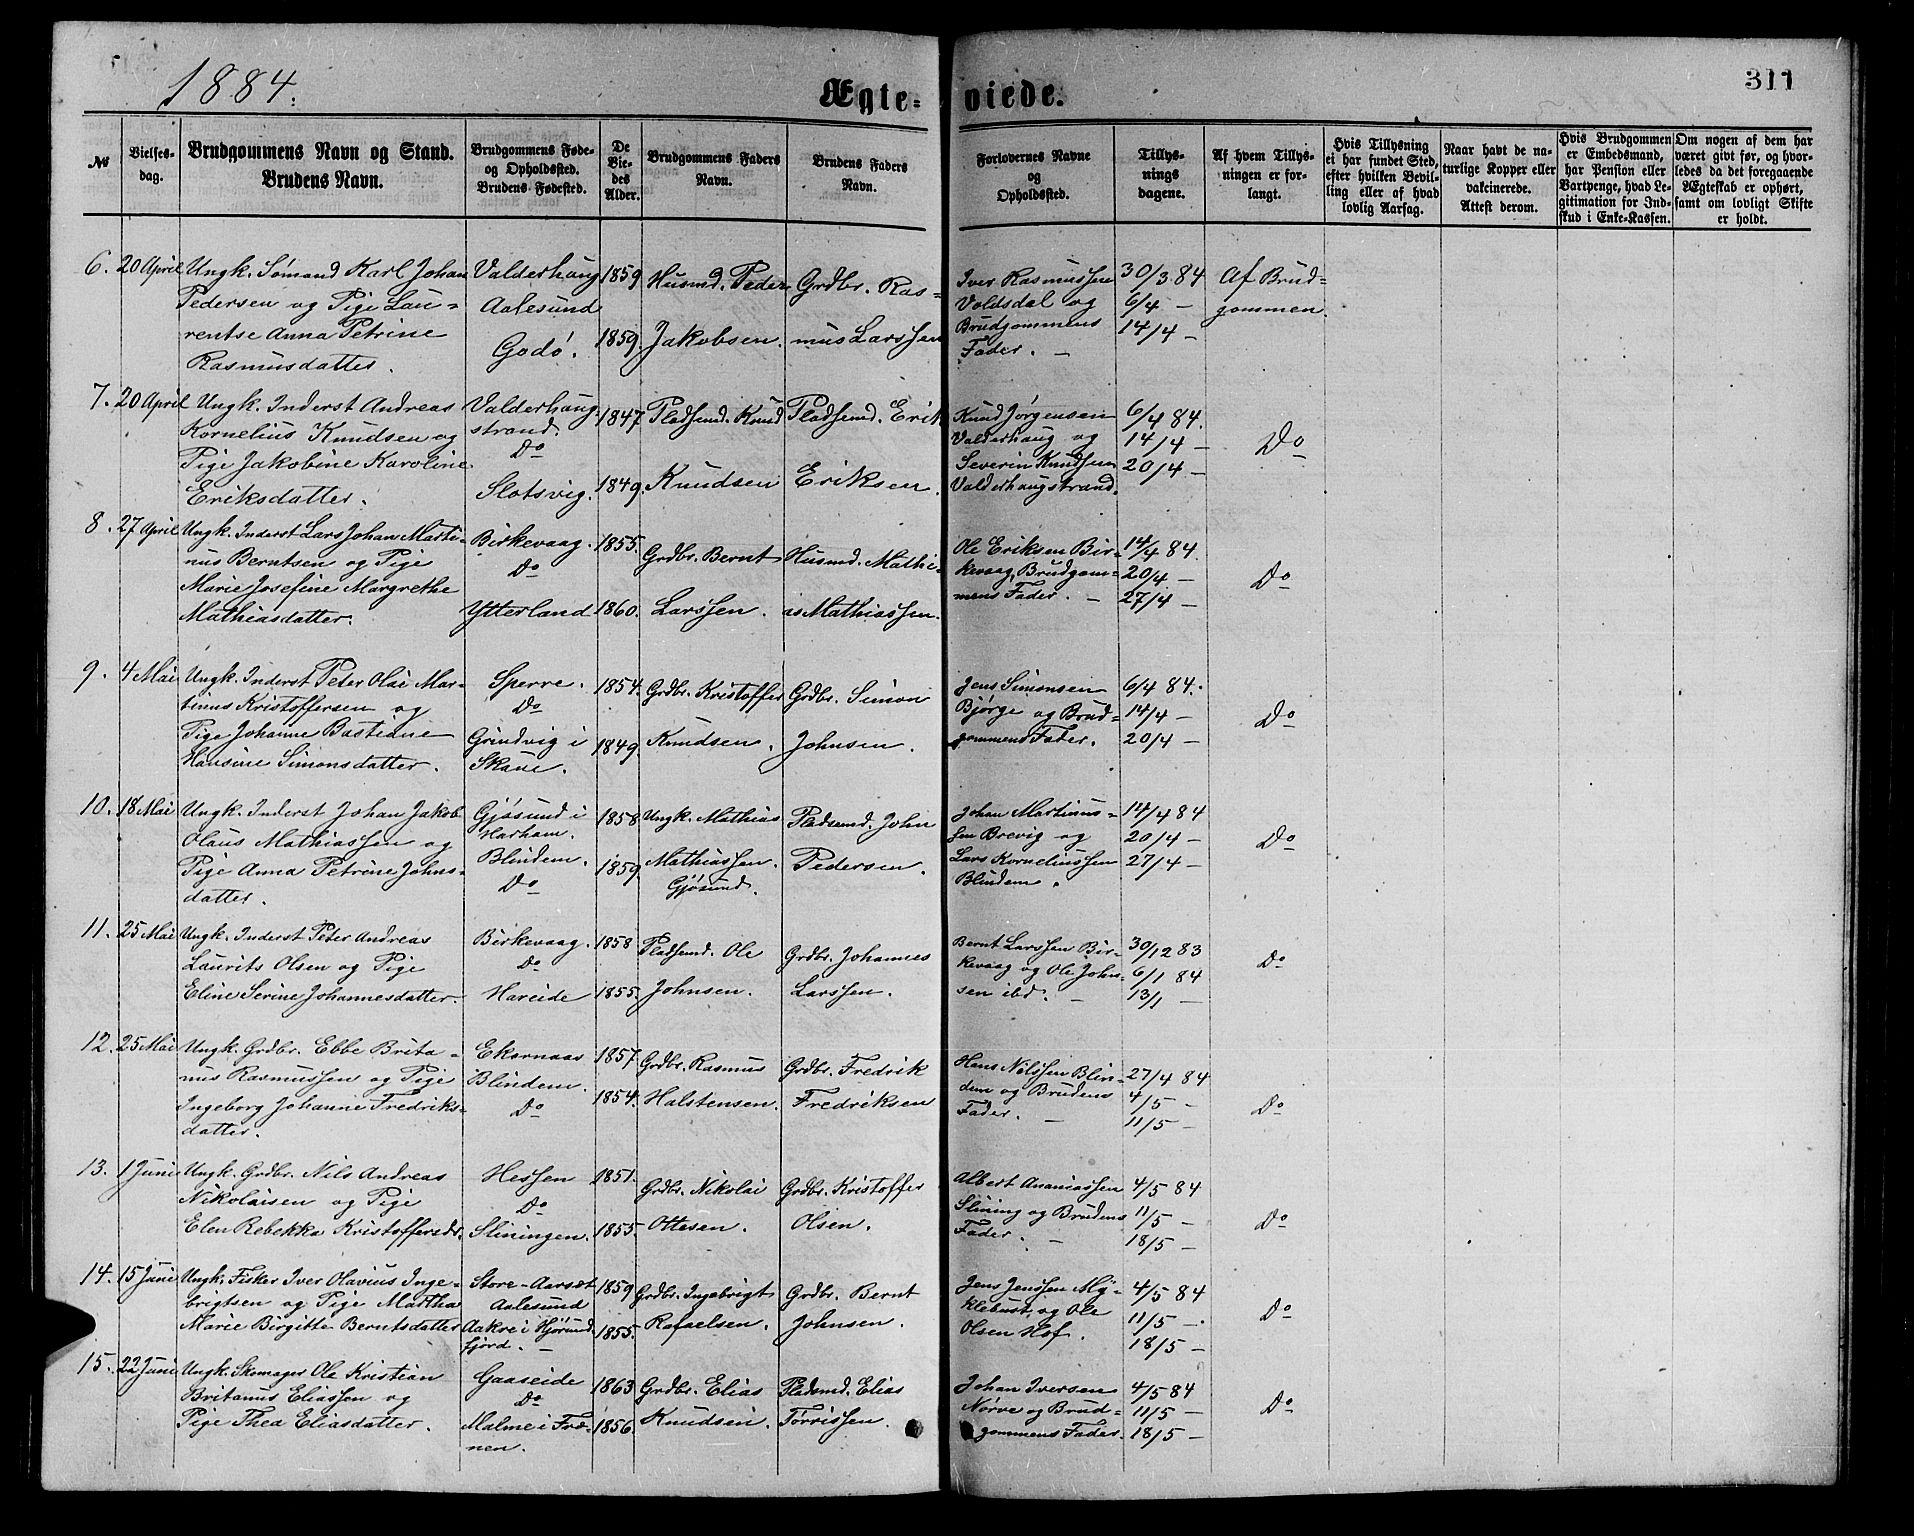 1884.
Ægte-
viede.
311
No
Vielses-
dag.
Brudgommens Navn og Stand.
Brudens Navn.
Brudgommens Føde-
og Opholdssted.
Brudens Fødested.
De
Vie-
des
Alder.
Brudgommens Faders
Navn.
Brudens Faders
Navn.
Forlovernes Navne
og
Opholdssted.
Tillys-
nings
dagene.
Af hvem Tillys-
ningen er for-
langt.
Hvis Tillysning
ei har fundet Sted,
efter hvilken Bevil-
ling eller af hvad
lovlig Aarsag.
Naar havt de na-
turlige Kopper eller
vakcinerede.
Attest derom.
Hvis Brudgommen
er Embedsmand,
har Pension eller
Vartpenge, hvad Le-
gitimation for Ind-
skud i Enke-Kassen.
Om nogen af dem har
været givt før, og hvor-
ledes da det foregaaende
Ægteskab er ophørt,
samt om lovligt Skifte
er holdt.
6. 20 April
Ungk. Sømand Karl Johan
Pedersen og Pige Lau-
rentse Anna Petrine
Rasmusdatter.
Valderhaug
Aalesund
Godø.
1859
1859.
Husmd. Peder
Jakobsen.
Grdbr. Ras-
mus Larssen
Iver Rasmussen
Voldsdal og
Brudgommens
Fader. —
30/3 84
6/4 —
14/4 —
Af Brud-
gommen.
7. 20 April
Ungk. Inderst Andreas
Kornelius Knudsen og
Pige Jakobine Karoline
Eriksdatter.
Valderhaug-
strand.
Do
Slotsvig.
1847
1849.
Pladsemd. Knud
Knudsen
Pladsemd. Erik
Eriksen.
Knud Jørgensen
Valderhaug og
Severin Knudsen
Valderhaugstrand.
6/4 84.
14/4 —
20/4 —
Do
8. 27 April
Ungk. Inderst Lars Johan Marti-
nus Berntsen og Pige
Marie Josefine Margrethe
Mathiasdatter.
Birkevaag.
Do
Ytterland
1855.
1860.
Grdbr. Bernt
Larssen.
Husmd. Mathi-
as Mathiassen.
Ole Eriksen Bir-
kevaag, Brudgom-
mens Fader. —
14/4 84.
20/4 —
27/4 —
Do
9. 4 Mai
Ungk. Inderst Peter Olai Mar-
tinus Kristoffersen og
Pige Johanne Bastiane
Hansine Simonsdatter.
Sperre.
Do
Grindvig i
Skaue.
1854.
1849.
Grdbr. Kristoffer
Knudsen.
Grdbr. Simon
Johnsen.
Jens Simonsen
Bjørge og Brud-
gommens Fader.
6/4 84.
14/4 —
20/4 —
Do
10. 18 Mai
Ungk. Inderst Johan Jakob
Olaus Mathiassen og
Pige Anna Petrine Johns-
datter.
Gjøsund i
Harham.
Blindem.
Do
1858
1859.
Ungk. Mathias
Mathiassen.
Gjøsund.
Pladsemd. John
Pedersen.
Johan Martinus-
sen Brevig og
Lars Korneliussen
Blindem.
14/4 84
20/4 —
27/4 —
Do
11. 25 Mai
Ungk. Inderst Peter Andreas
Laurits Olsen og Pige
Eline Serine Johannesdatter.
Birkevaag.
Do
Hareide
1858
1855.
Pladsemd. Ole
Johnsen.
Grdbr. Johannes
Larssen.
Bernt Larssen Bir-
kevaag og Ole John-
sen ibd. —
30/12 83
6/1 84
13/1 —
Do
12. 25 Mai
Ungk. Grdbr. Ebbe Brita-
nus Rasmussen og Pige
Ingeborg Johanne Fredriks-
datter.
Ekornaas
Blindem.
Do
1857.
1854.
Grdbr. Rasmus
Halstensen.
Grdbr. Fredrik
Fredriksen
Hans Nilssen Blin-
dem og Brudens
Fader. —
27/4 84
4/5 —
11/5 —
Do
13. 1 Juni
Ungk. Grdbr. Nils Andreas
Nikolaisen og Pige
Elen Rebekka Kristoffersdr.
Hessen
Do
Sliningen.
1851.
1855.
Grdbr. Nikolai
Ottesen.
Grdbr. Kristoffer
Olsen.
Albert Ananiassen
Slining og Brudens
Fader. —
4/5 84
11/5 —
18/5 —
Do
14. 15 Juni
Ungk. Fisker Iver Olavius Inge-
brigtsen og Pige Martha
Marie Birgitte Berntsdatter
Store-Aarset
Aalesund
Aakre i Hjørund-
fjord. —
1859
1855.
Grdbr. Ingebrigt
Rafaelsen.
Grdbr. Bernt
Johnsen.
Jens Jenssen My-
klebust, og Ole
Olsen Hof.
4/5 84
11/5 —
18/5 —
Do
15. 22 Juni
Ungk. Skomager Ole Kristian
Britanus Eliassen og
Pige Thea Eliasdatter.
Gaaseide
Do
Malme i Fræ-
nen.
1863
1856.
Grdbr. Elias
Knudsen.
Pladsmd. Elias
Tørrissen.
Johan Iversen
Nørve og Brud-
gommens Fader.
4/5 84
11/5 —
18/5 —
Do